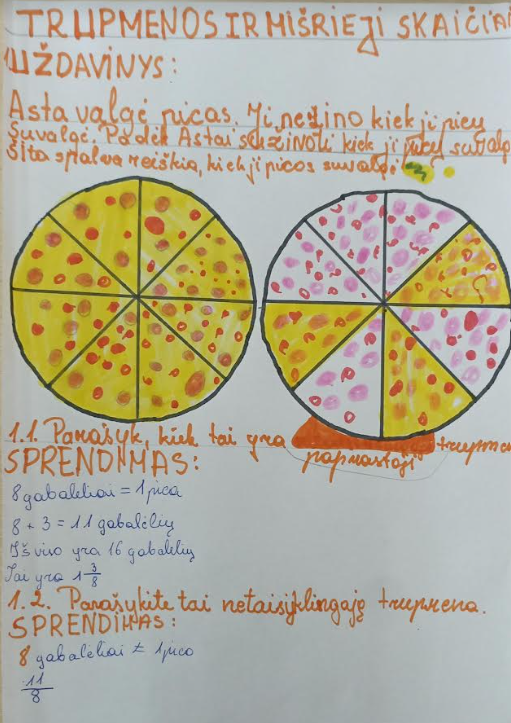 TRUPMENOS IR MIŠRIEJI SKAIČIAI
UŽDAVINYS:
Asta valgė picas. Ji nežino kiek ji picų
suvalgė. Padėk Astai sužinoti kiek ji picų suvalgė
Šita spalva reiškia, kiek ji picos suvalgė
1.1. Parašyk, kiek tai yra
paprastąji trupmen
SPRENDIMAS:
8 gabalėliai = 1 pica
8 + 3 = 11 gabalėlių
Iš viso yra 16 gabalėlių
Tai yra 1 3/8
1.2. Parašykite tai netaisyklingąję trupmena.
SPRENDIMAS:
8 gabalėliai = 1 pica
11/8